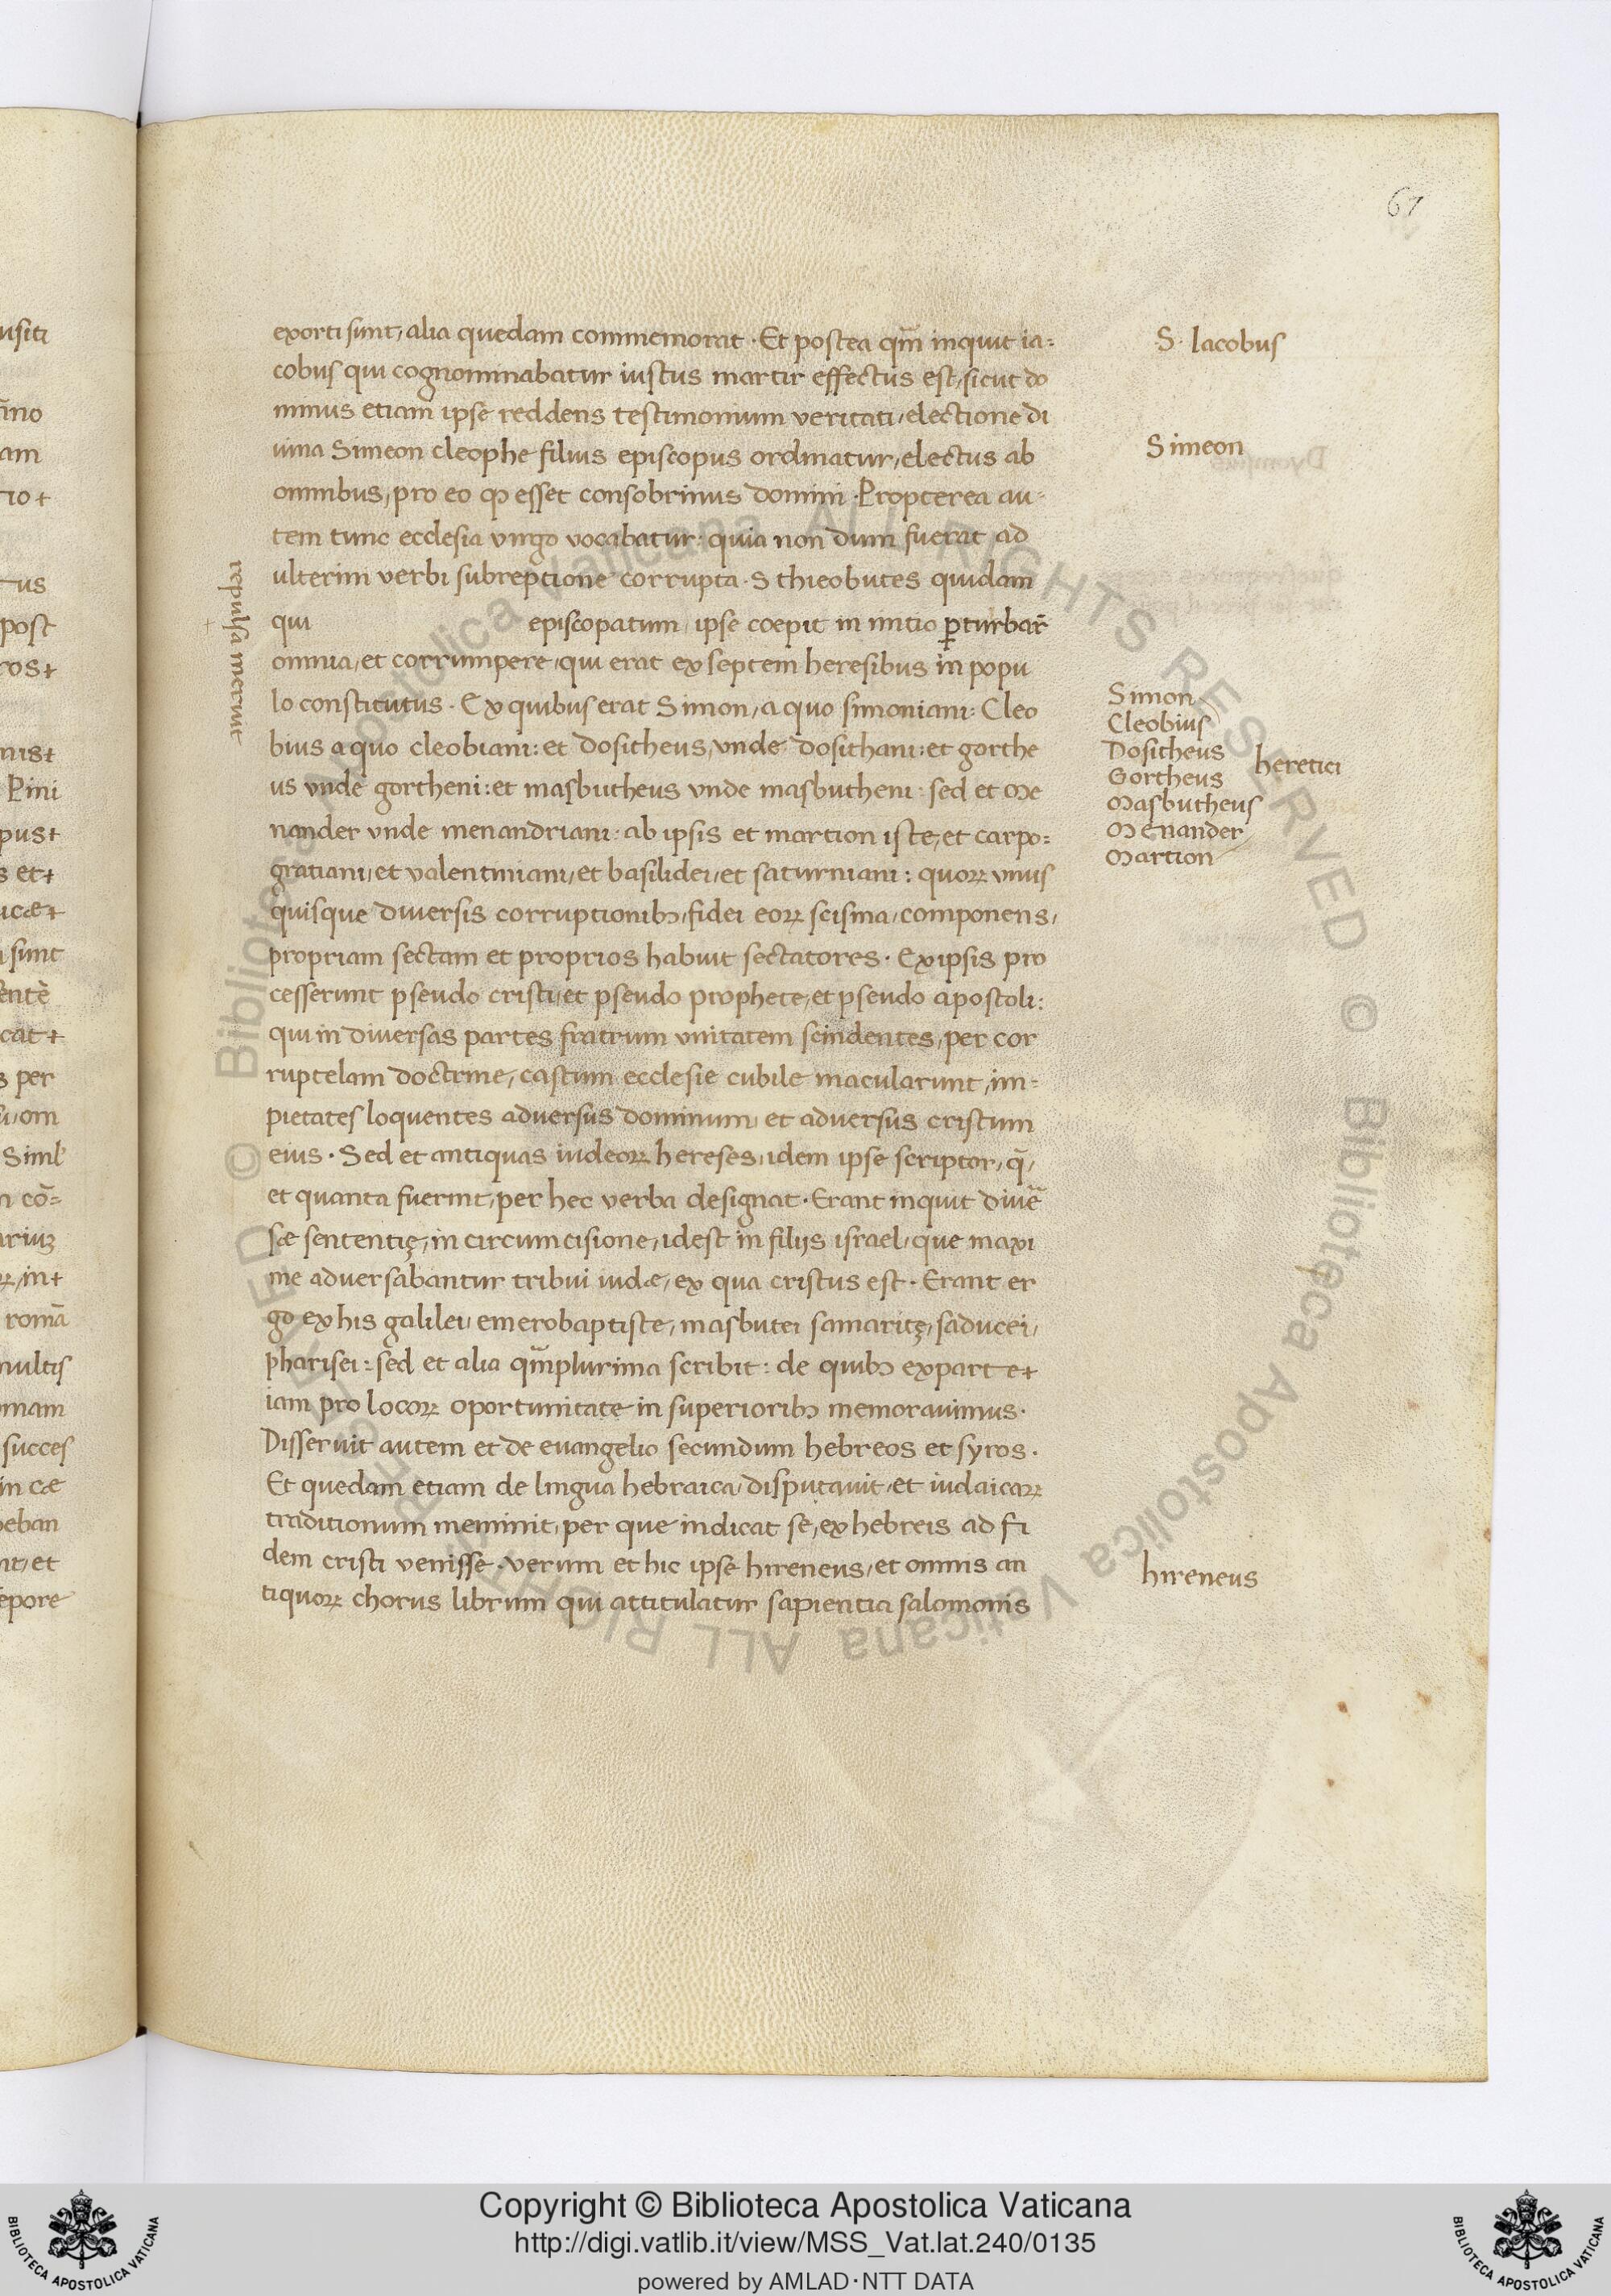 67
exorti sunt, alia quedam commemorat · Et postea qm̄ inquit ia=
cobus qui cognominabatur iustus martir effectus est, sicut do
minus etiam ipse reddens testimonium veritati, electione di
uina Simeon cleophe filius episcopus ordinatur, electus ab
omnibus, pro eo ꝙ esset consobrinus domini · Propterea au-
tem tunc ecclesia virgo vocabatur: quia non dum fuerat ad
ulterini verbi subreptione corrupta · S thieobutes quidam
qui episcopatum, ipse coepit in initio ꝑturbar̄
omnia, et corrumpere, qui erat ex septem heresibus in popu
lo constitutus · Ex quibus erat Simon, a quo simoniani: Cleo
bius a quo cleobiani: et dositheus, vnde dosithani: et gorthe
us vnde gortheni: et masbutheus vnde masbutheni: sed et Me
nander vnde menandriani: ab ipsis et martion iste, et carpo=
gratiani, et valentiniani, et basilidei, et saturniani: quoꝝ vnus
quisque diuersis corruptionibꝫ, fidei eoꝝ scisma, componens,
propriam sectam et proprios habuit sectatores · Ex ipsis pro
cesserunt pseudo cristi, et pseudo prophete, et pseudo apostoli:
qui in diuersas partes fratrum vnitatem scindentes, per cor
ruptelam doctrine, castum ecclesie cubile macularunt, im-
pietates loquentes aduersus dominum, et aduersus cristum
eius · Sed et antiquas iudeoꝝ hereses, idem ipse scriptor, q̄,
et quanta fuerint, per hec verba designat · Erant inquit diuē
sæ sententię, in circumcisione, idest in filijs israel, que maxi
me aduersabantur tribui iudæ, ex qua cristus est · Erant er
go ex his galilei, emerobaptiste, masbutei samaritę, saducei,
pharisei: sed et alia qm̄plurima scribit: de quibꝫ ex parte+
iam pro locoꝝ oportunitate in superioribꝫ memorauimus ·
Disseruit autem et de euangelio secundum hebreos et syros ·
Et quedam etiam de lingua hebraica, disputauit, et iudaicaꝝ
traditionum meminit, per que indicat se, ex hebreis ad fi
dem cristi venisse · verum et hic ipse hireneus, et omnis an
tiquoꝝ chorus librum qui attitulatur sapientia salomonis
+ repulsa meruit
S · Iacobus
Simeon
Simon
Cleobius
Dositheus
Gortheus
Masbutheus
Menander
Martion
heretici
hireneus
usiti
am
post
Pini
pus+
sunt
cat+
s per
multis
succes
in cæ
nt, et
Copyright © Biblioteca Apostolica Vaticana
http://digi.vatlib.it/view/MSS_Vat.lat.240/0135
powered by AMLAD·NTT DATA
BIBLIOTECA APOSTOLICA VATICANA
BIBLIOTECA APOSTOLICA VATICANA
© Biblioteca Apostolica Vaticana ALL RIGHTS RESERVED © Biblioteca Apostolica Vaticana ALL RIGHTS RESERVED